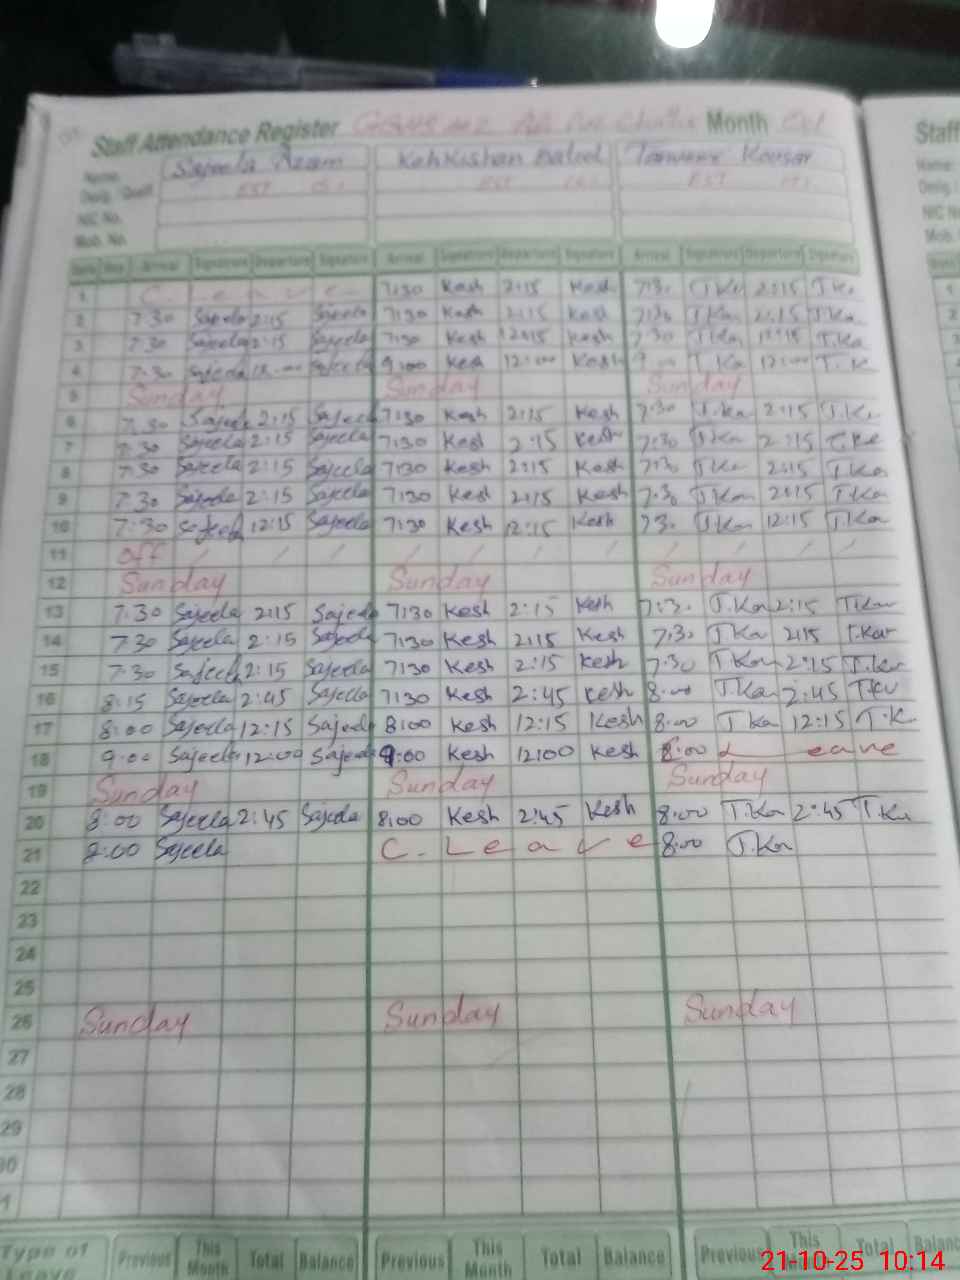 Staff Attendance Register Month Oct
Staff
Name Sajeela Azam Kehkishan Batool Tanveer Kousar
Name:
Desig./Qualif. EST EST EST
Desig.
NIC No.
NIC No
Mob. No.
Mob.
Date Day Arrival Signature Departure Signature Arrival Signature Departure Signature Arrival Signature Departure Signature
1 C. Leave 7:30 Kesh 2:15 Kesh 7:30 T.Ka 2:15 T.Ka
2 7:30 Sajeela 2:15 Sajeela 7:30 Kesh 2:15 Kesh 7:30 T.Ka 2:15 T.Ka
3 7:30 Sajeela 2:15 Sajeela 7:30 Kesh Kesh 7:30 T.Ka T.Ka
4 7:30 Sajeela 12:00 Sajeela 9:00 Kesh 12:00 Kesh 9:00 T.Ka 12:00 T.K
5 Sunday Sunday
6 7:30 Sajeela 2:15 Sajeela 7:30 Kesh 2:15 Kesh 7:30 T.Ka 2:15 T.Ka
7 7:30 Sajeela 2:15 Sajeela 7:30 Kesh 2:15 Kesh 7:30 T.Ka 2:15 T.Ka
8 7:30 Sajeela 2:15 Sajeela 7:30 Kesh 2:15 Kesh 7:30 T.Ka 2:15 T.Ka
9 7:30 Sajeela 2:15 Sajeela 7:30 Kesh 2:15 Kesh 7:30 T.Ka 2:15 T.Ka
10 7:30 Sajeela 12:15 Sajeela 7:30 Kesh 12:15 Kesh 7:30 T.Ka 12:15 T.Ka
11 off / / / / / / / / / / /
12 Sunday Sunday Sunday
13 7:30 Sajeela 2:15 Sajeela 7:30 Kesh 2:15 Kesh 7:30 T.Ka 2:15 T.Ka
14 7:30 Sajeela 2:15 Sajeela 7:30 Kesh 2:15 Kesh 7:30 T.Ka 2:15 T.Ka
15 7:30 Sajeela 2:15 Sajeela 7:30 Kesh 2:15 Kesh 7:30 T.Ka 2:15 T.Ka
16 8:15 Sajeela 2:45 Sajeela 7:30 Kesh 2:45 Kesh 8:00 T.Ka 2:45 T.Ka
17 8:00 Sajeela 12:15 Sajeela 8:00 Kesh 12:15 Kesh 8:00 T.Ka 12:15 T.K
18 9:00 Sajeela 12:00 Sajeela 9:00 Kesh 12:00 Kesh 8:00 Leave
19 Sunday Sunday Sunday
20 8:00 Sajeela 2:45 Sajeela 8:00 Kesh 2:45 Kesh 8:00 T.Ka 2:45 T.Ka
21 8:00 Sajeela C. Leave 8:00 T.Ka
22
23
24
25
26 Sunday Sunday Sunday
27
28
29
30
Type of Leave Previous This Month Total Balance Previous This Month Total Balance Previous This Month Total Balance
21-10-25 10:14